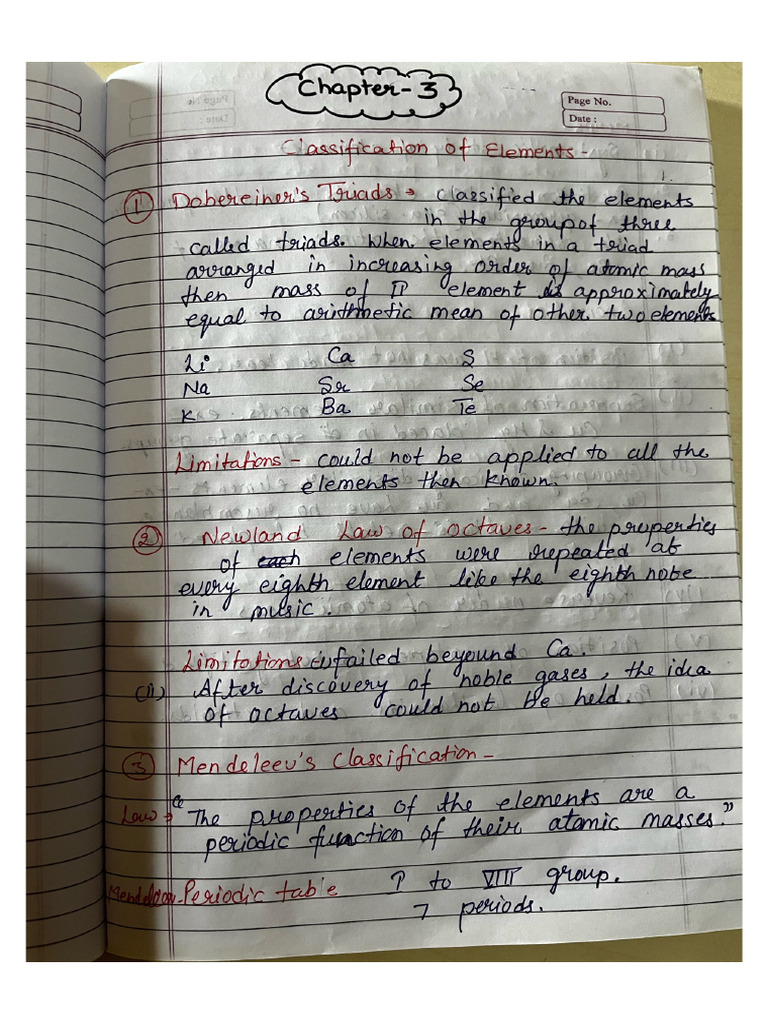 Chapter-3
Page No.
Date :
Classification of Elements -
① Dobereiner's Triads → classified the elements
in the group of three
called triads. when elements in a triad
arranged in increasing order of atomic mass
then mass of II element is approximately
equal to arithmetic mean of other two elements
Li Ca S
Na Sr Se
K Ba Te
Limitations - could not be applied to all the
elements then known.
② Newland Law of octaves - the properties
of each elements were repeated at
every eighth element like the eighth note
in music.
Limitations (i) failed beyound Ca.
(ii) After discovery of noble gases, the idea
of octaves could not be held.
③ Mendeleev's Classification -
Law → "The properties of the elements are a
periodic function of their atomic masses."
Periodic table I to VIII group.
7 periods.